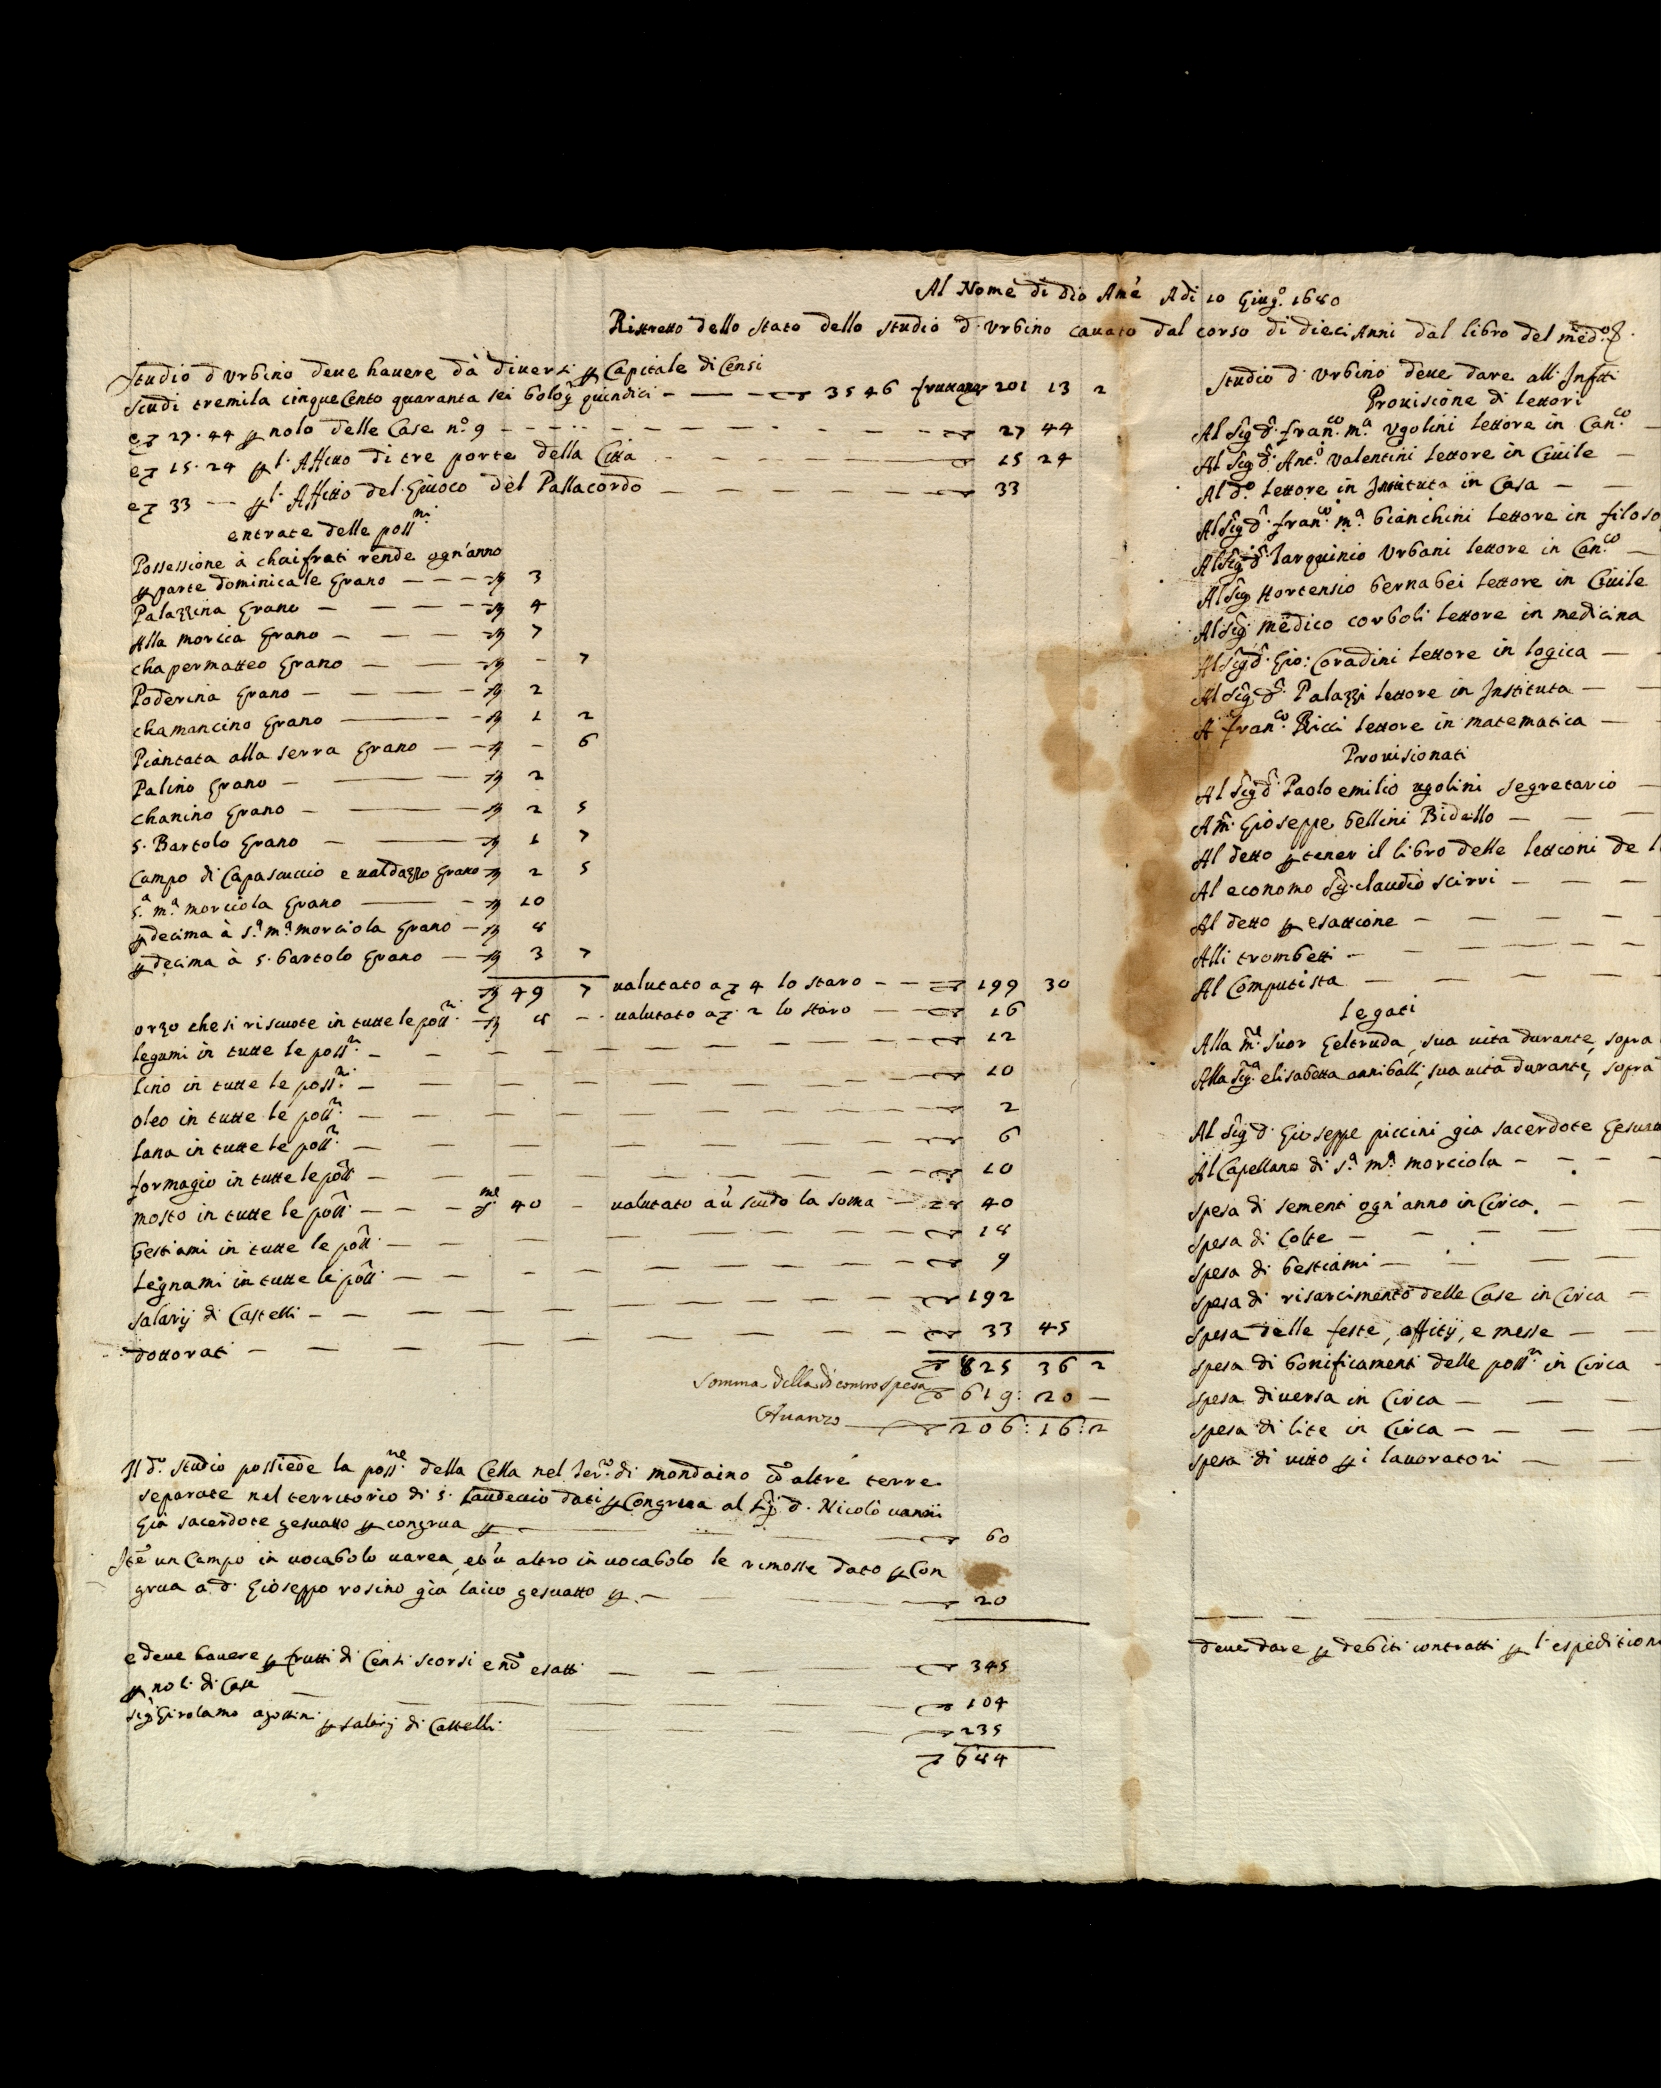 Al Nome di Dio Amē Adi 10 Giug.o 1680
Ristretto dello stato dello studio d Urbino cavato dal corso di dieci Anni dal libro del med.o
Studio d Urbino deve havere dà diversi p Capitale di Censi
Scudi tremila cinque Cento quaranta sei bolog quindici — 3546 fruttano 201 13 2
e 27.44 p nolo delle Case n.o 9 — 27 44
e 15.24 p l'Affitto di tre porte della Città — 15 24
e 33 — p l'Affitto del Giuoco del Pallacordo — 33
entrate delle poss.ni
Possessione à chaifrati rende ogn'anno
p parte dominicale Grano — 3
Palazzina Grano — 4
Alla morcia Grano — 7
chapermatteo Grano — - 7
Poderina Grano — 2
chamancino Grano — 1 2
Piantata alla serra Grano — - 6
Palino Grano — 2
chanino Grano — 2 5
S. Bartolo Grano — 1 7
Campo di Capascuccio e valdazzo Grano 2 5
S.a m.a morciola Grano — 10
p decima à S.a m.a morciola Grano — 8
p decima à S. bartolo Grano — 3 7
49 7 valutato a 4 lo staro — 199 30
orzo che si riscuote in tutte le poss.ni — 8 - valutato a 2 lo staro — 16
legumi in tutte le poss.ni — 12
lino in tutte le poss.ni — 10
oleo in tutte le poss.ni — 2
lana in tutte le poss.ni — 6
formagio in tutte le poss — 10
mosto in tutte le poss — s.me 40 - valutato a ū scudo la soma — 40
bestiami in tutte le poss — 18
Legnami in tutte le poss — 9
salarij di Castelli — 192
dottorati — 33 45
825 36 2
Somma della di contro spesa 619: 20 —
Avanzo — 206:16:2
Il d.o studio possiede la poss.ne della Cella nel Ter.o di mondaino cō altre terre
separate nel territorio di S. Laudeccio dati p Congrua al Sig d. Nicolò vanni
Già sacerdote gesuatto p congrua p — 60
Itē un Campo in vocabolo varea, et ū altro in vocabolo le rimosse dato p Con
grua a d. Gioseppo rosino già laico gesuatto p — 20
e deve havere p frutti di Censi scorsi e nō esatti — 345
p noli di Case — 104
Sig Girolamo agostini p salarij di Castelli — 235
684
Studio d Urbino deve dare all Infrti
Provisione di lettori
Al Sig d. fran.co m.a Ugolini lettore in Can.co —
Al Sig d. Ant.o Valentini lettore in Civile —
Al d.o lettore in Instituta in Casa —
Al Sig d. fran.co m.a bianchini lettore in filoso
Al Sig d. Tarquinio Urbani lettore in Can.co —
Al Sig Hortensio bernabei lettore in Civile
Al Sig medico corboli lettore in medicina
Al Sig d. Gio: Coradini lettore in logica —
Al Sig d. Palazzi lettore in Instituta —
A fran.co Ricci lettore in matematica —
Provisionati
Al Sig d. Paolo emilio ugolini segretario —
A m. Gioseppe bellini Bidello —
Al detto p tener il libro delle lettioni de l
Al economo Sig claudio scirri —
Al detto p esattione —
Alli trombetti —
Al Computista —
legati
Alla m. suor Geltruda, sua vita durante, sopra
Alla Sig.a elisabetta anniballi, sua vita durante, sopra
Al Sig d. Gioseppe piccini gia sacerdote Gesua
Al Capellano di S.a m.a morciola —
spesa di sementi ogn'anno in Circa —
spesa di Colte —
spesa di bestiami —
spesa di risarcimento delle Case in Circa —
spesa delle feste, offitij, e messe —
spesa di bonificamenti delle poss.ni in Circa —
spesa diversa in Circa —
spesa di lite in Circa —
spesa di vitto p i lavoratori —
deve dare p debiti contratti p l'espedition